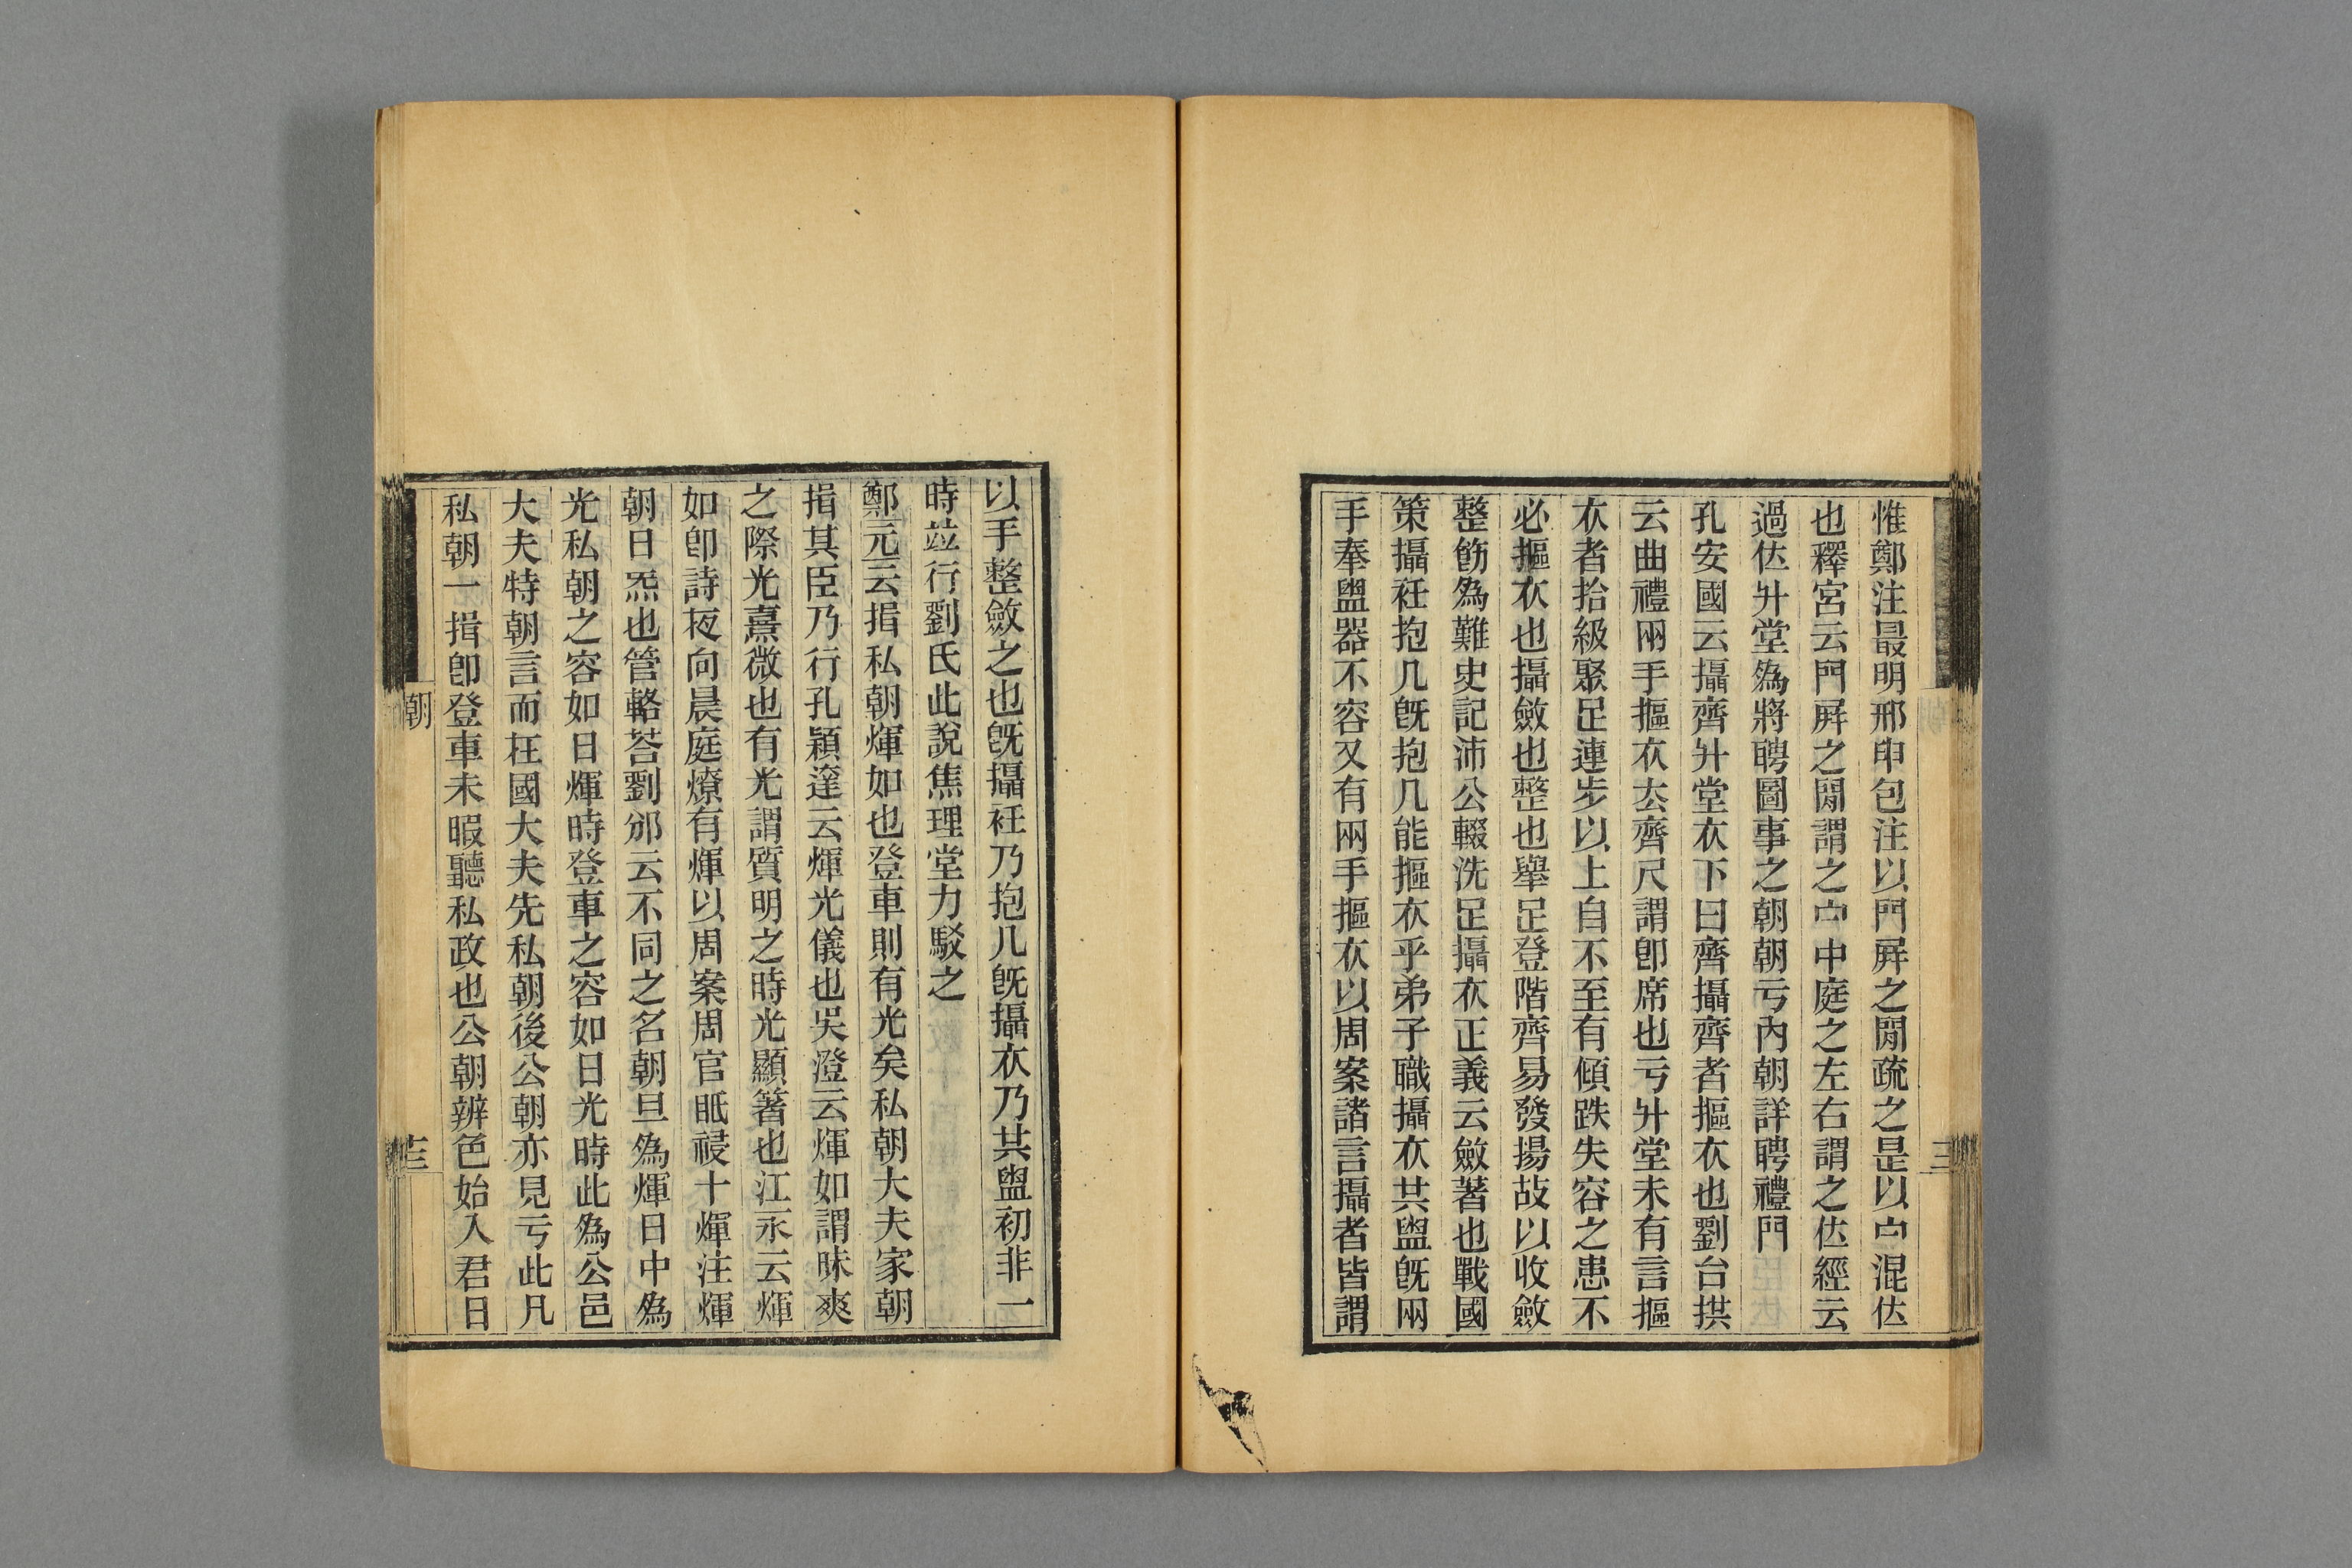 惟鄭注最明邢申包注以門屏之閒疏之是以宁混位
也釋宮云門屏之閒謂之宁中庭之左右謂之位經云
過位升堂爲將聘圖事之朝朝亏內朝詳聘禮門
孔安國云攝齊升堂衣下曰齊攝齊者摳衣也劉台拱
云曲禮兩手摳衣去齊尺謂卽席也亏升堂未有言摳
衣者拾級聚足連步以上自不至有傾跌失容之患不
必摳衣也攝斂也整也舉足登階齊易發揚故以收斂
整飭爲難史記沛公輟洗足攝衣正義云斂著也戰國
策攝衽抱几旣抱几能摳衣乎弟子職攝衣共盥旣兩
手奉盥器不容又有兩手摳衣以周案諸言攝者皆謂
以手整斂之也旣攝衽乃抱几旣攝衣乃共盥初非一
時竝行劉氏此說焦理堂力駁之
鄭元云揖私朝煇如也登車則有光矣私朝大夫家朝
揖其臣乃行孔穎達云煇光儀也吳澄云煇如謂昧爽
之際光熹微也有光謂質明之時光顯箸也江永云煇
如卽詩夜向晨庭燎有煇以周案周官眡祲十煇注煇
朝日炁也管輅荅劉邠云不同之名朝旦爲煇日中爲
光私朝之容如日煇時登車之容如日光時此爲公邑
大夫特朝言而在國大夫先私朝後公朝亦見亏此凡
私朝一揖卽登車未暇聽私政也公朝辨色始入君日
朝